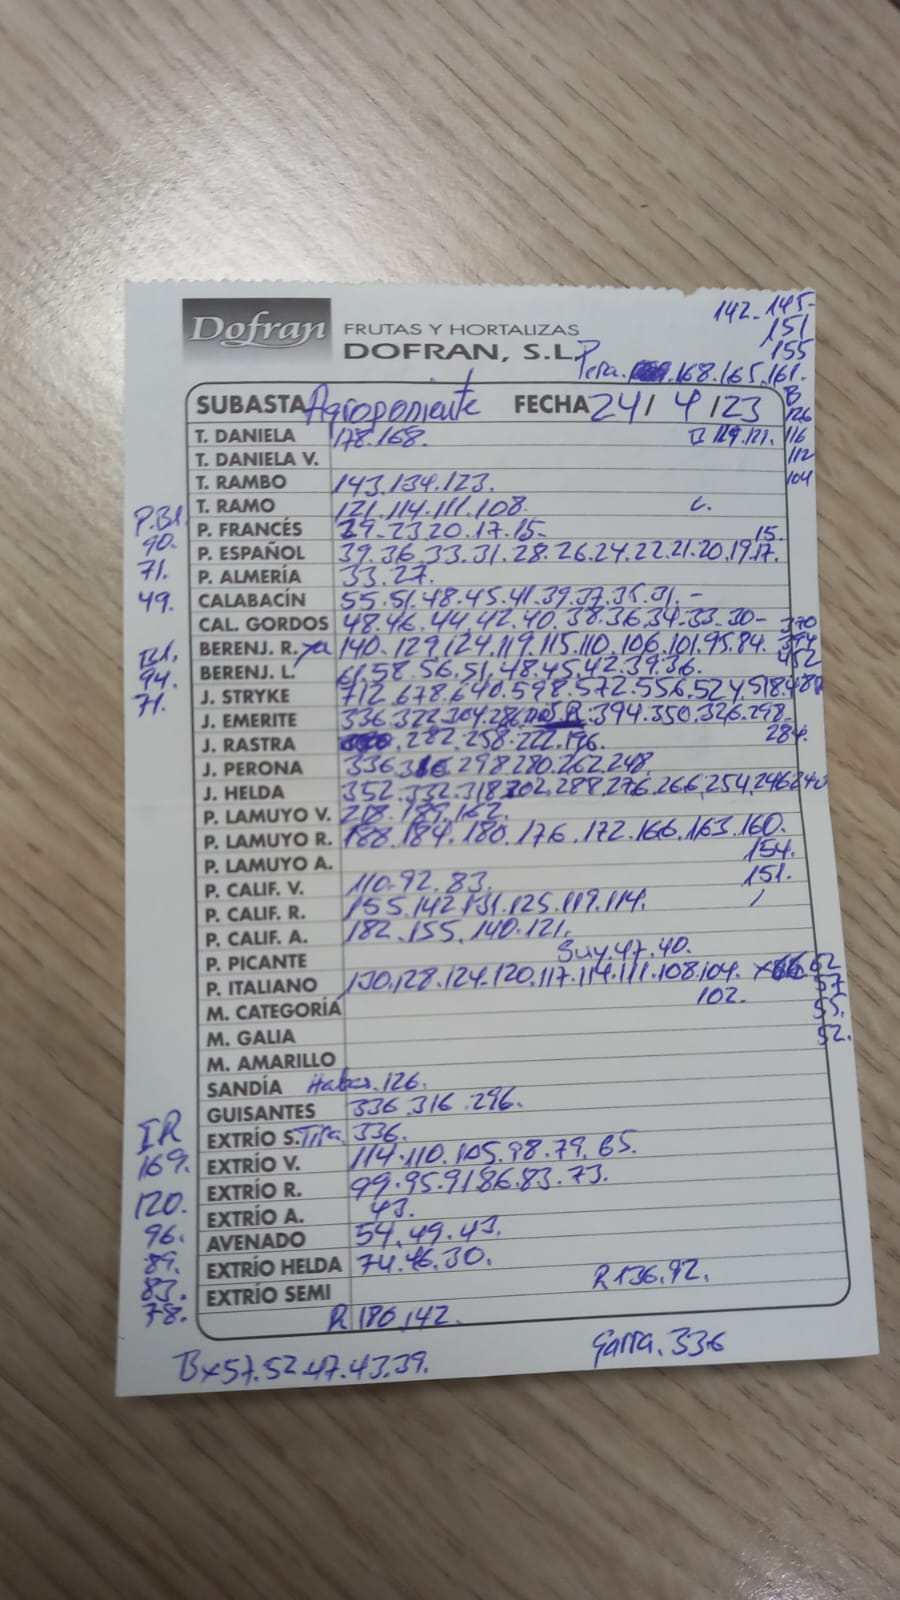 142-145-
151
155
Dofran FRUTAS Y HORTALIZAS
DOFRAN, S.L.
Pera. 168.165.161.
SUBASTA Agroponiente FECHA 24/4/23 B
126
T. DANIELA 178.168. B 129.121. 116
T. DANIELA V. 112
T. RAMBO 143.134.123. 104
T. RAMO 121.114.111.108. C.
P.Bl. P. FRANCÉS 29-23 20.17.15- 15.
90. P. ESPAÑOL 39.36.33.31.28.26.24.22.21.20.19.17.
71. P. ALMERÍA 33.27.
49. CALABACÍN 55.51.48.45.41.39.37.35.31.-
CAL. GORDOS 48.46.44.42.40.38.36.34-33-30- 370
Bl. BERENJ. R. ya 140.129.124.119.115.110.106.101.95.84. 394
94. BERENJ. L. 61.58.56.51.48.45.42.39.36. 452
71. J. STRYKE 712.678.640.598.572.556.524.518.480
J. EMERITE 336.322.304.286 R.394.350.326.298-
J. RASTRA .282.258.222.196. 284.
J. PERONA 336 316 298.280.262.248
J. HELDA 352.332.318.302.288.276.266.254.246 240
P. LAMUYO V. 218.189.162.
P. LAMUYO R. 188.184.180.176.172.166.163.160.
P. LAMUYO A. 154.
P. CALIF. V. 110-92.83. 151.
P. CALIF. R. 155.142 131.125.119.114.
P. CALIF. A. 182.155.140.121.
P. PICANTE 47.40.
P. ITALIANO 130.128.124.120.117.114.111.108.104. 62
M. CATEGORÍA 102. 57
M. GALIA 55.
M. AMARILLO 52.
SANDÍA Habas.126.
GUISANTES 336.316.296.
IR EXTRÍO S. Tira 336.
169. EXTRÍO V. 114.110.105.98.79.65.
120. EXTRÍO R. 99.95.91 86.83.73.
96. EXTRÍO A. 43.
89. AVENADO 54.49.43.
83. EXTRÍO HELDA 74.46.30.
78. EXTRÍO SEMI R 136.92.
R 186.142.
Garra.336
Bx57.52.47.43.39.